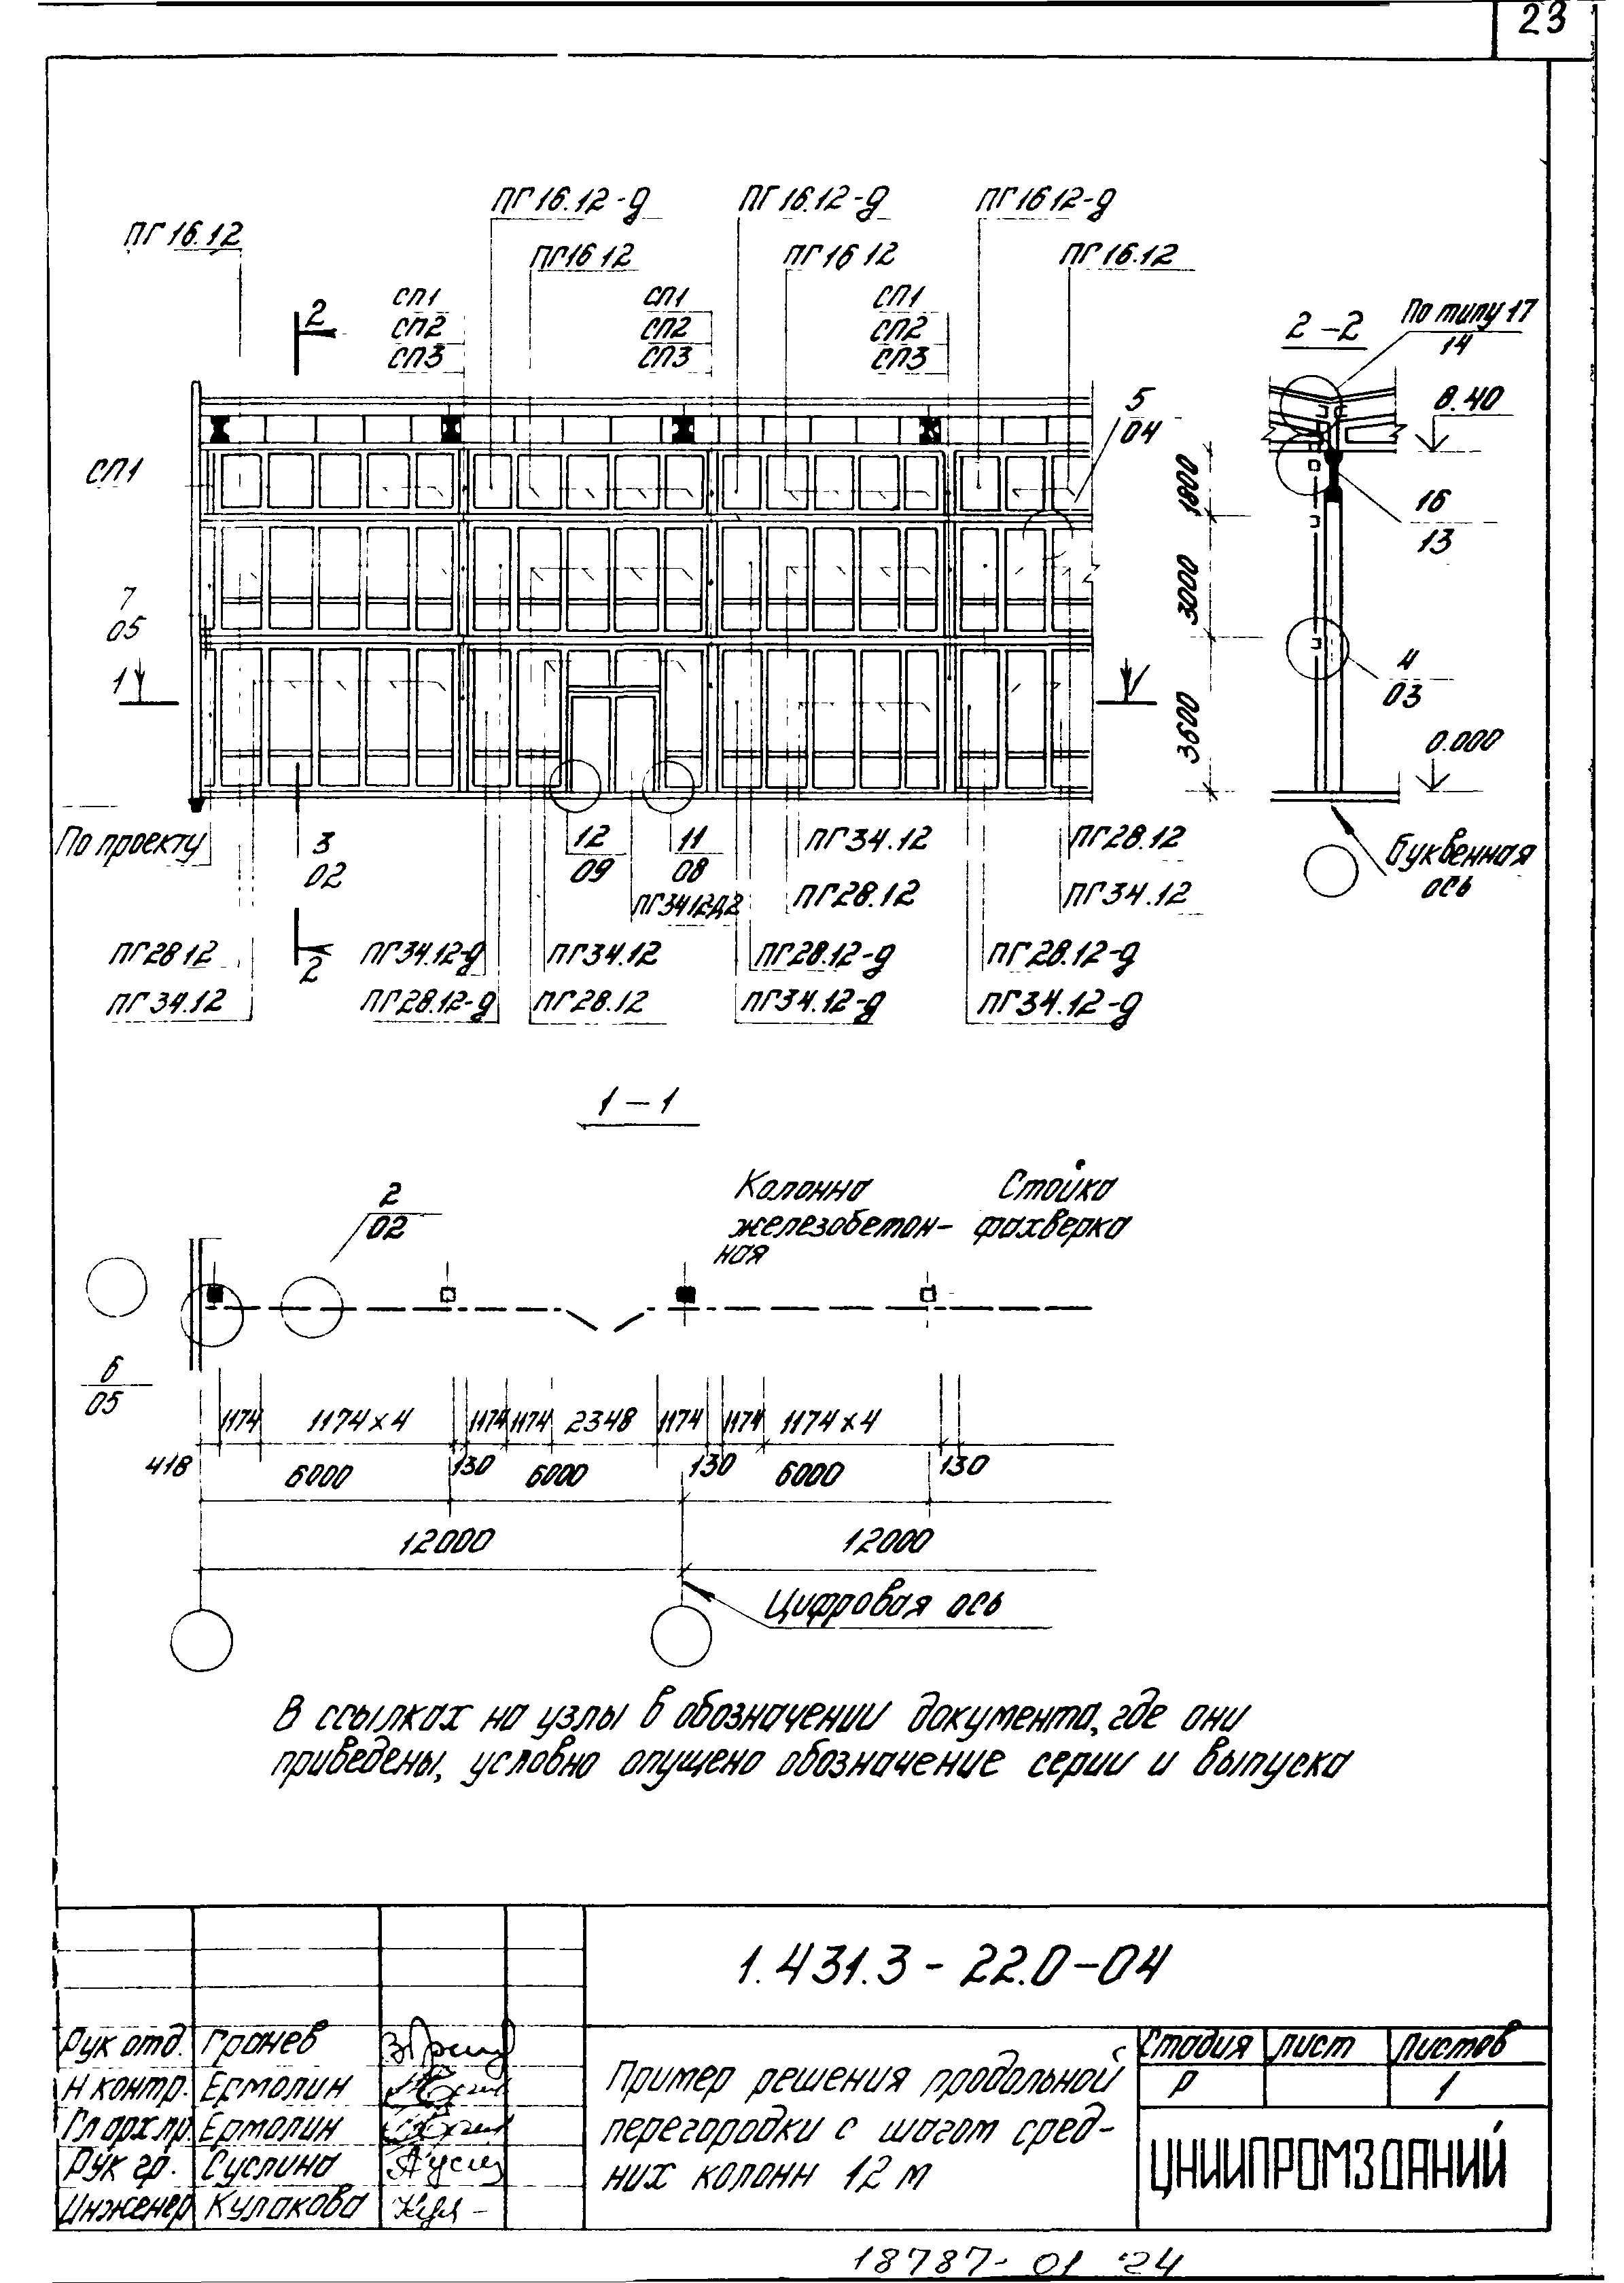 23
ПГ16.12-д
ПГ16.12-д
ПГ16 12-д
ПГ16.12
ПГ16 12
ПГ16 12
ПГ16.12
2
СП1
СП2
СП3
СП1
СП2
СП3
СП1
СП2
СП3
2-2
По типу 17
14
5
04
8.40
СП1
1800
16
13
7
05
3000
1
1
4
03
3600
0.000
По проекту
3
02
12
09
11
08
ПГ34.12
ПГ28.12
Буквенная
ось
ПГ3412Д2
ПГ28.12
ПГ34.12
ПГ28 12
2
ПГ34.12-д
ПГ34.12
ПГ28.12-д
ПГ28.12-д
ПГ34.12
ПГ28.12-д
ПГ28.12
ПГ34.12-д
ПГ34.12-д
1-1
2
02
Колонна
железобетон-
ная
Стойка
фахверка
6
05
1174
1174х4
1174
1174
2348
1174
1174
1174х4
418
6000
130
6000
130
6000
130
12000
12000
Цифровая ось
В ссылках на узлы в обозначении документа, где они
приведены, условно опущено обозначение серии и выпуска
1.431.3-22.0-04
Рук отд. Гранев
Н контр. Ермолин
Гл арх пр. Ермолин
Рук гр. Суслина
Инженер Кулакова
Пример решения продольной
перегородки с шагом сред-
них колонн 12 м
Стадия лист Листов
Р 1
ЦНИИПРОМЗДАНИЙ
18787-01 24